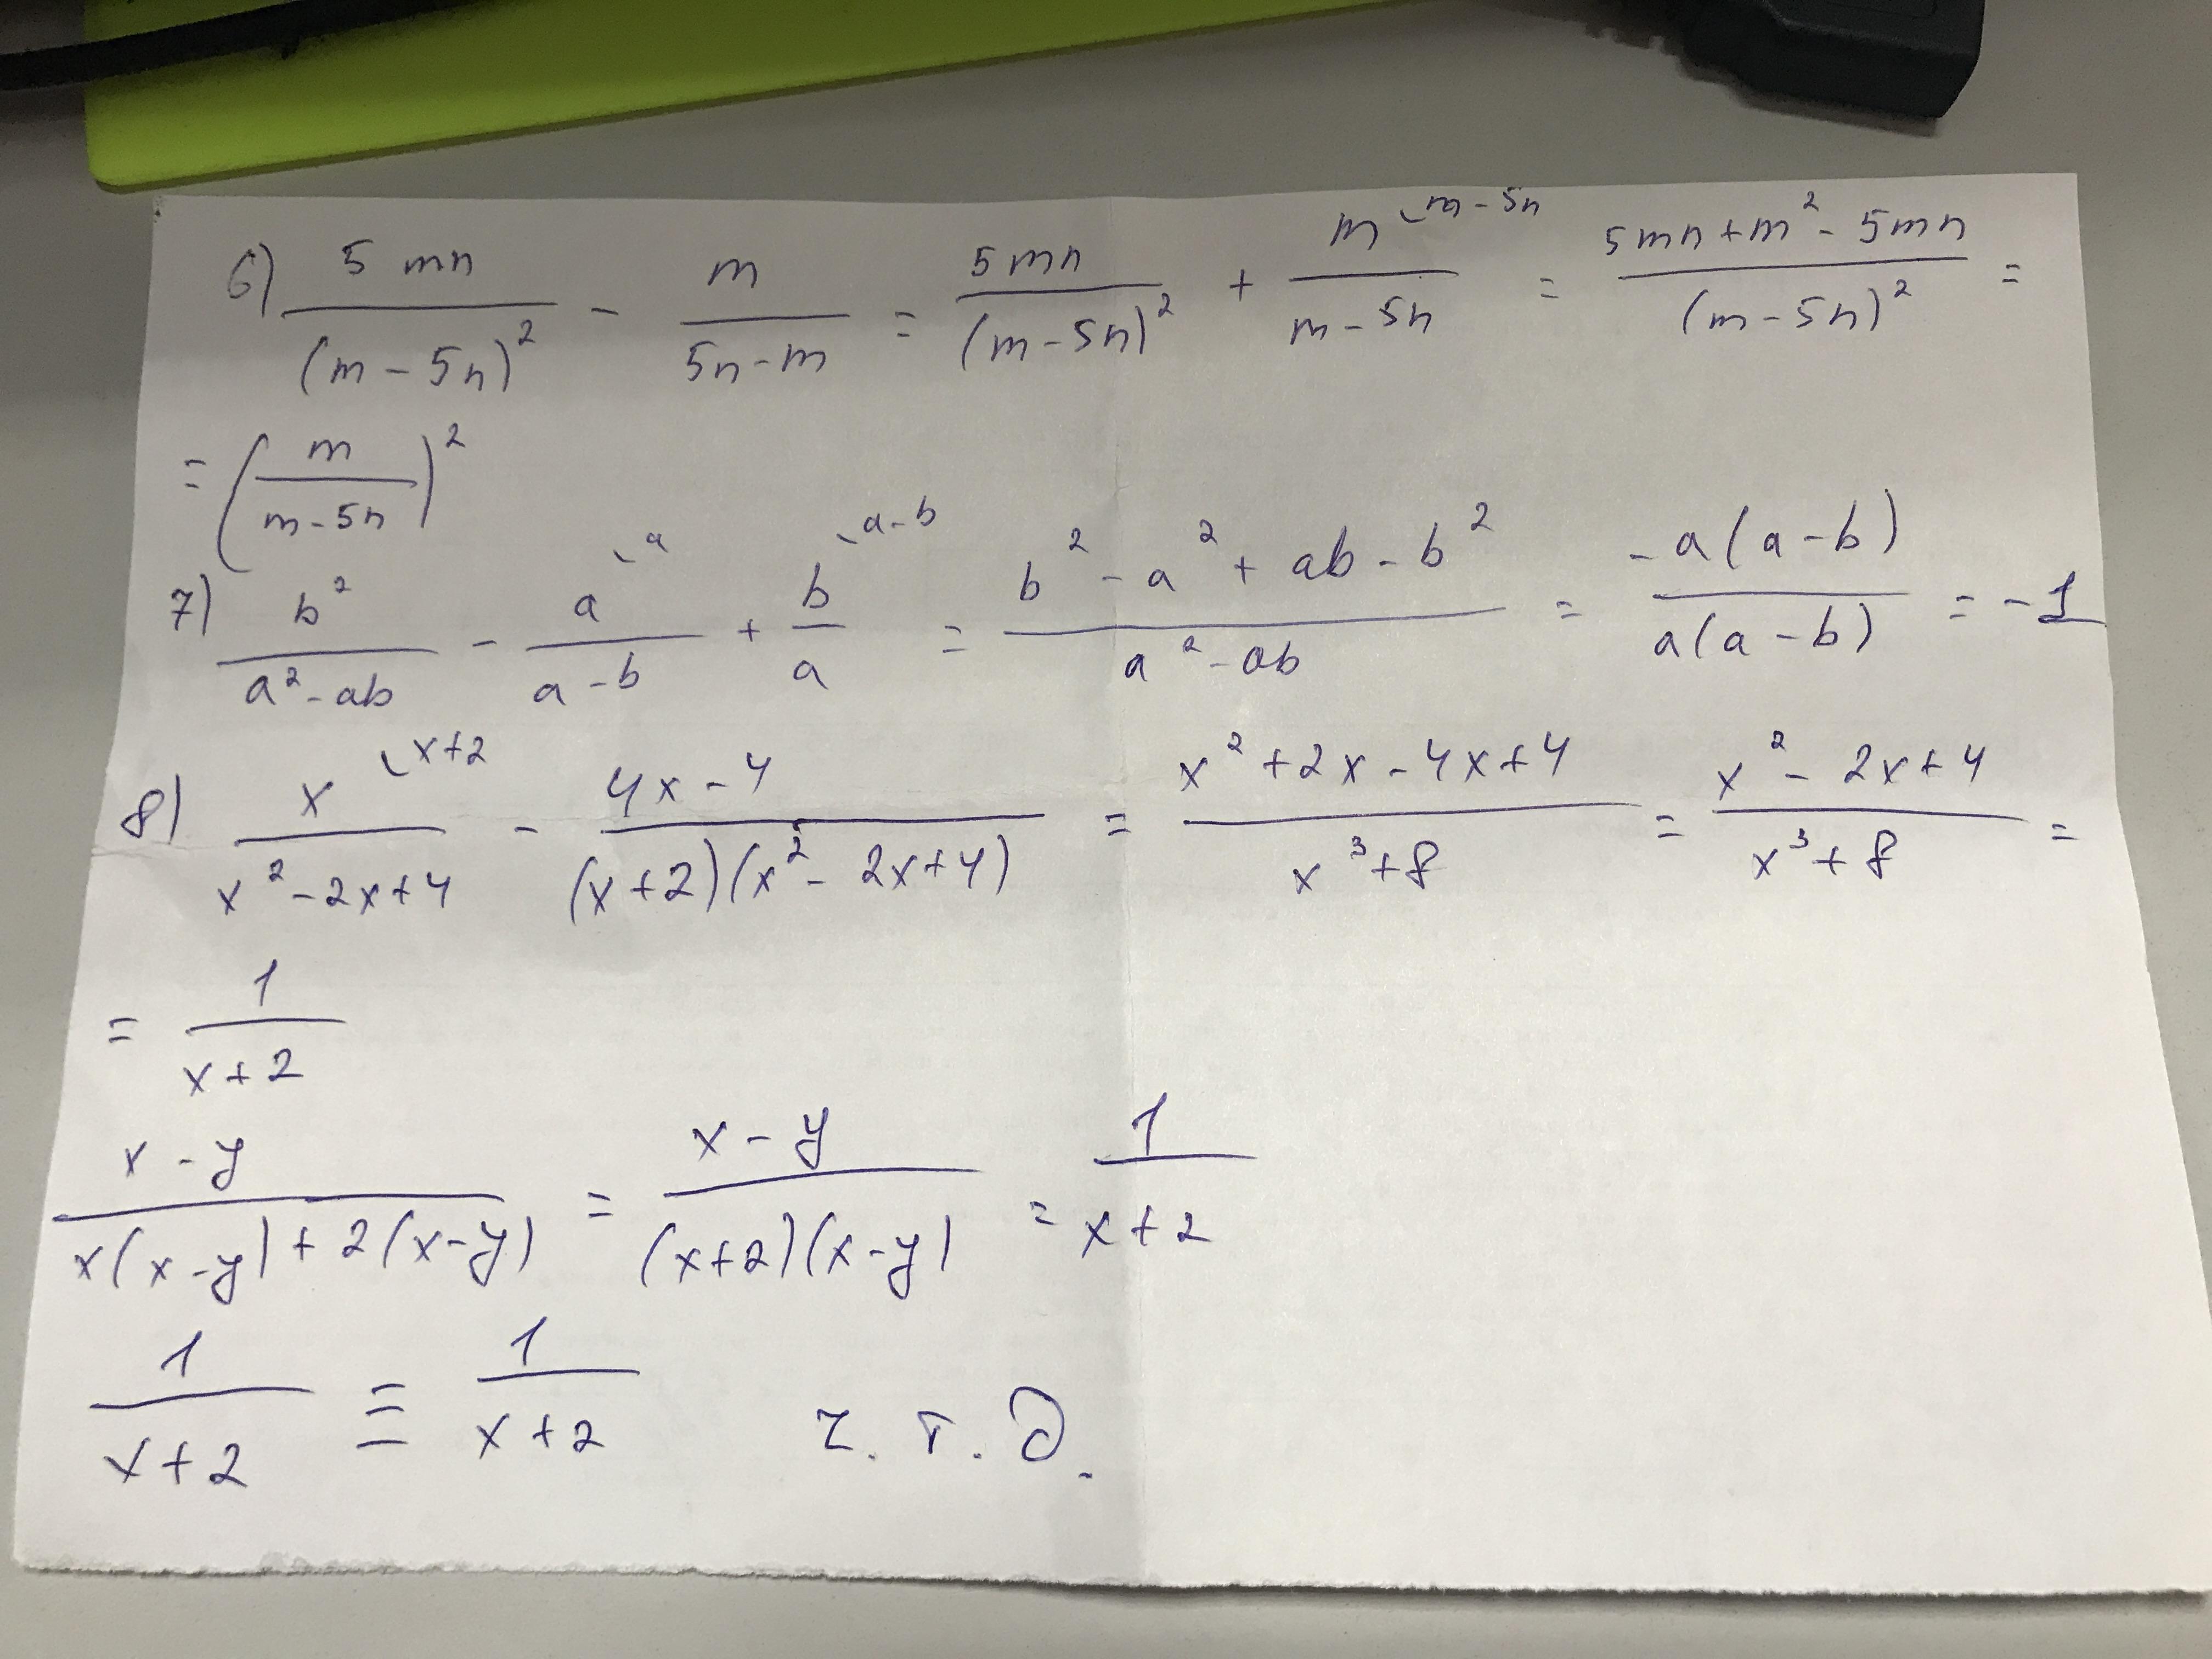 6) \frac{5mn}{(m-5n)^2} - \frac{m}{5n-m} = \frac{5mn}{(m-5n)^2} + \frac{m^{\setminus m-5n}}{m-5n} = \frac{5mn+m^2-5mn}{(m-5n)^2} =
= \left(\frac{m}{m-5n}\right)^2
7) \frac{b^2}{a^2-ab} - \frac{a^{\setminus a}}{a-b} + \frac{b^{\setminus a-b}}{a} = \frac{b^2-a^2+ab-b^2}{a^2-ab} = \frac{-a(a-b)}{a(a-b)} = -1
8) \frac{x^{\setminus x+2}}{x^2-2x+4} - \frac{4x-4}{(x+2)(x^2-2x+4)} = \frac{x^2+2x-4x+4}{x^3+8} = \frac{x^2-2x+4}{x^3+8} =
= \frac{1}{x+2}
\frac{x-y}{x(x-y)+2(x-y)} = \frac{x-y}{(x+2)(x-y)} = \frac{1}{x+2}
\frac{1}{x+2} ≡ \frac{1}{x+2} ч.т.д.